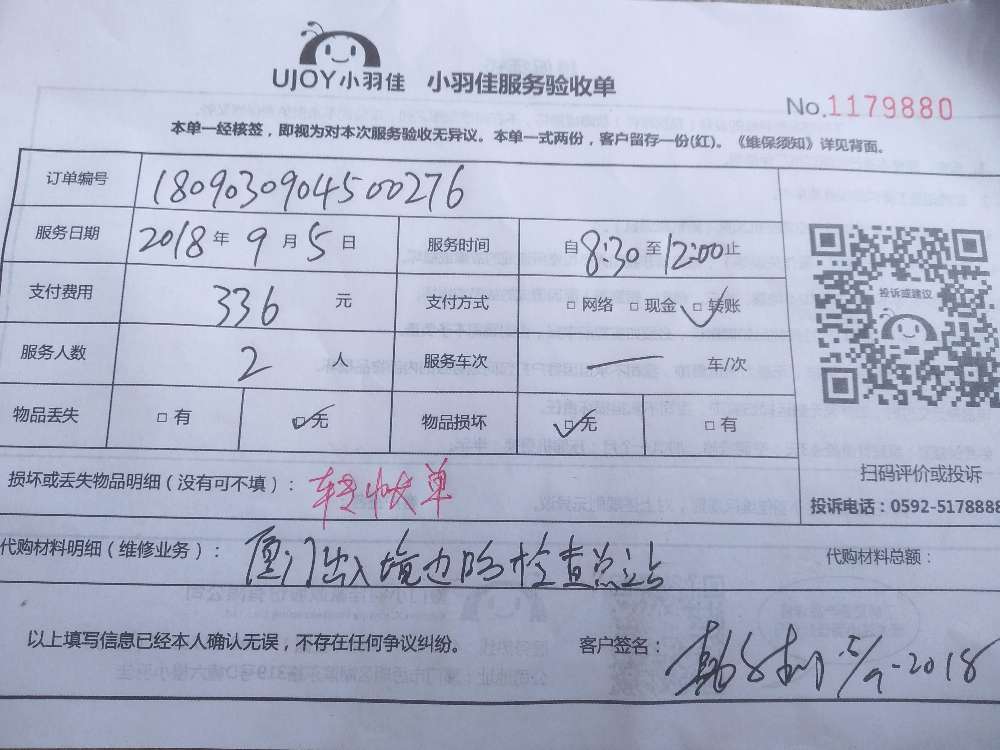 UJOY小羽佳 小羽佳服务验收单
No.1179880
本单一经核签，即视为对本次服务验收无异议。本单一式两份，客户留存一份(红)。《维保须知》详见背面。
订单编号 1809030904500276
服务日期 2018年9月5日 服务时间 自8:30至12:00止
支付费用 336 元 支付方式 □网络 □现金 □转账
投诉或建议
服务人数 2 人 服务车次 — 车/次
物品丢失 □有 □无 物品损坏 □无 □有
扫码评价或投诉
损坏或丢失物品明细（没有可不填）： 转账收单
投诉电话：0592-5178888
代购材料明细（维修业务）： 厦门出入境边防检查总站 代购材料总额：
以上填写信息已经本人确认无误，不存在任何争议纠纷。 客户签名： 5/9-2018